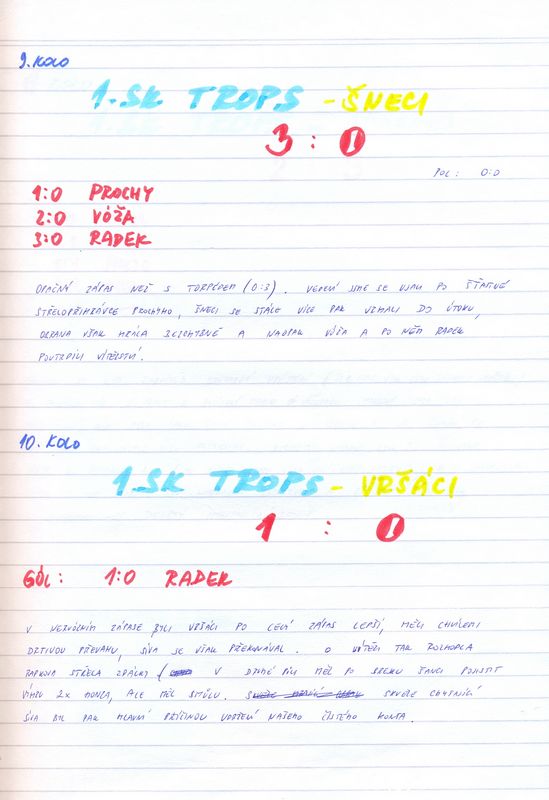 9. KOLO
1. SK TROPS - ŠNECI
3 : 0
POL: 0:0
1:0 PROCHY
2:0 VÓŽA
3:0 RADEK
OPAČNÝ ZÁPAS NEŽ S TORPÉDEM (0:3). VEDENÍ JSME SE UJALI PO ŠŤASTNÉ
STŘELOPŘIHRÁVCE PROCHYHO, ŠNECI SE STÁLE VÍCE PAK VRHALI DO ÚTOKU,
OBRANA VŠAK HRÁLA BEZCHYBNĚ A NAOPAK VÓŽA A PO NĚM RADEK
POTVRDILI VÍTĚZSTVÍ.
10. KOLO
1. SK TROPS - VRŠÁCI
1 : 0
GÓL: 1:0 RADEK
V NERVÓZNÍM ZÁPASE BYLI VRŠÁCI PO CELÝ ZÁPAS LEPŠÍ, MĚLI CHVÍLEMI
DRTIVOU PŘEVAHU, SÍVA SE VŠAK PŘEKONÁVAL. O VÍTĚZI TAK ROZHODLA
RADKOVA STŘELA ZDÁLKY ( V DRUHÉ PŮLI MĚL PO BREJKU ŠANCI POJISTIT
VÝHRU 2x HONZA, ALE MĚL SMŮLU. SKVĚLE CHYTAJÍCÍ
SÍVA BYL PAK HLAVNÍ PŘÍČINOU UDRŽENÍ NAŠEHO ČISTÉHO KONTA.